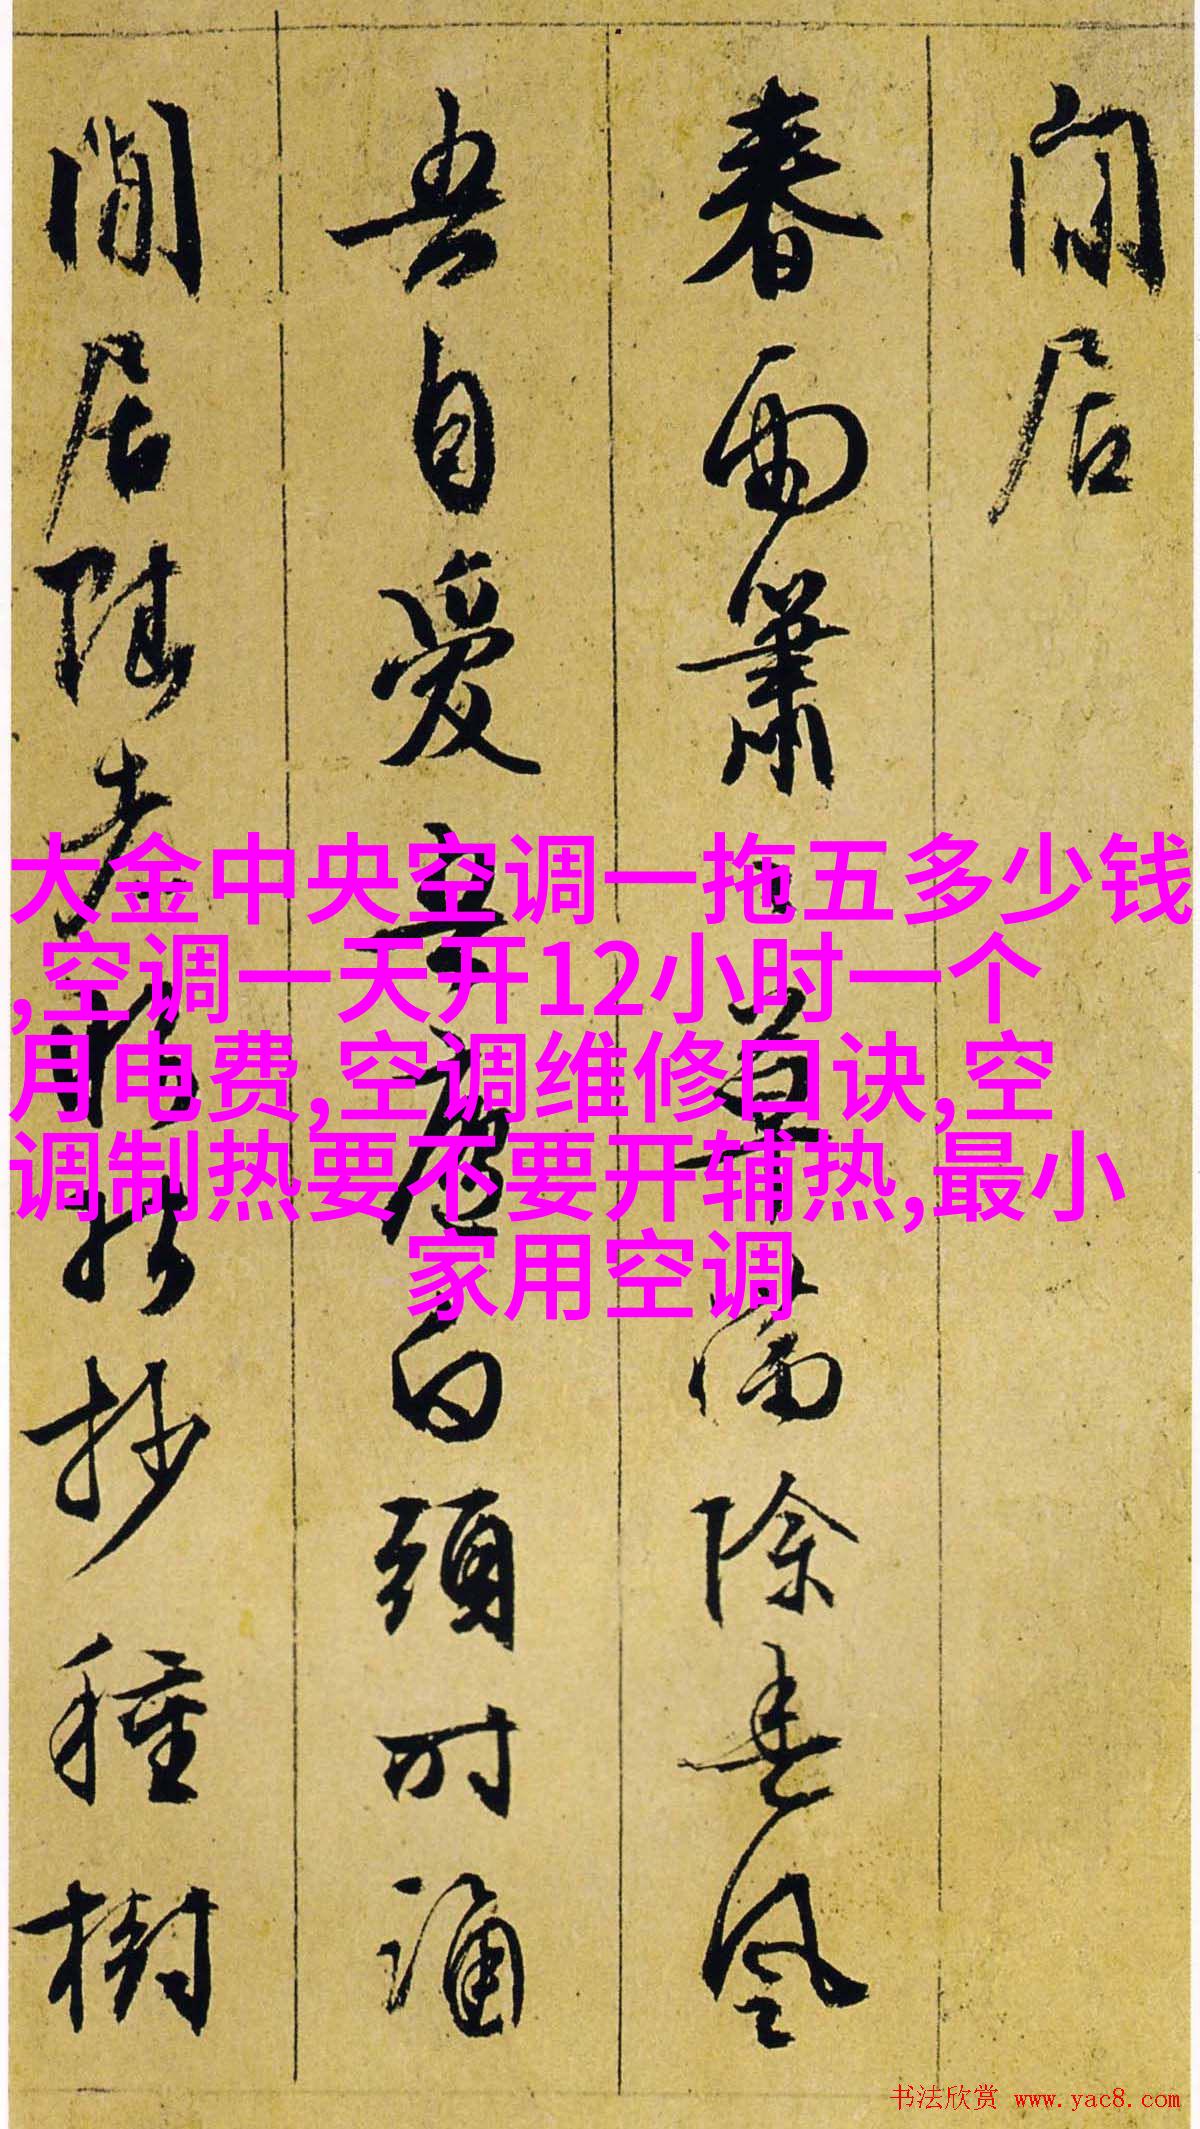 閒居
春雨蕭蕭草滿除春風
吾自愛吾廬白頭時誦
閒居 老 抄種樹
大金中央空调一拖五多少钱
,空调一天开12小时一个
月电费,空调维修口诀,空
调制热要不要开辅热,最小
家用空调
书法欣赏 www.yac8.com